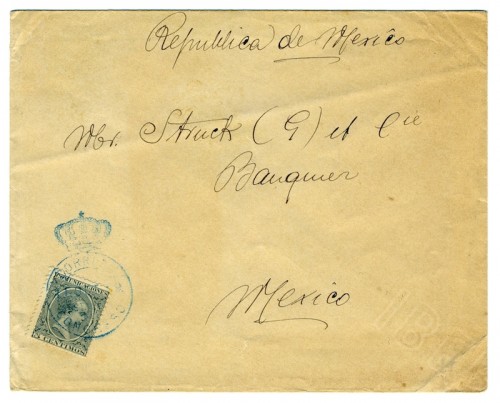 Republica de Mexico
Mr. Struck (G) et Cie
Banquier
Mexico
COMUNICACIONES
5 CENTIMOS